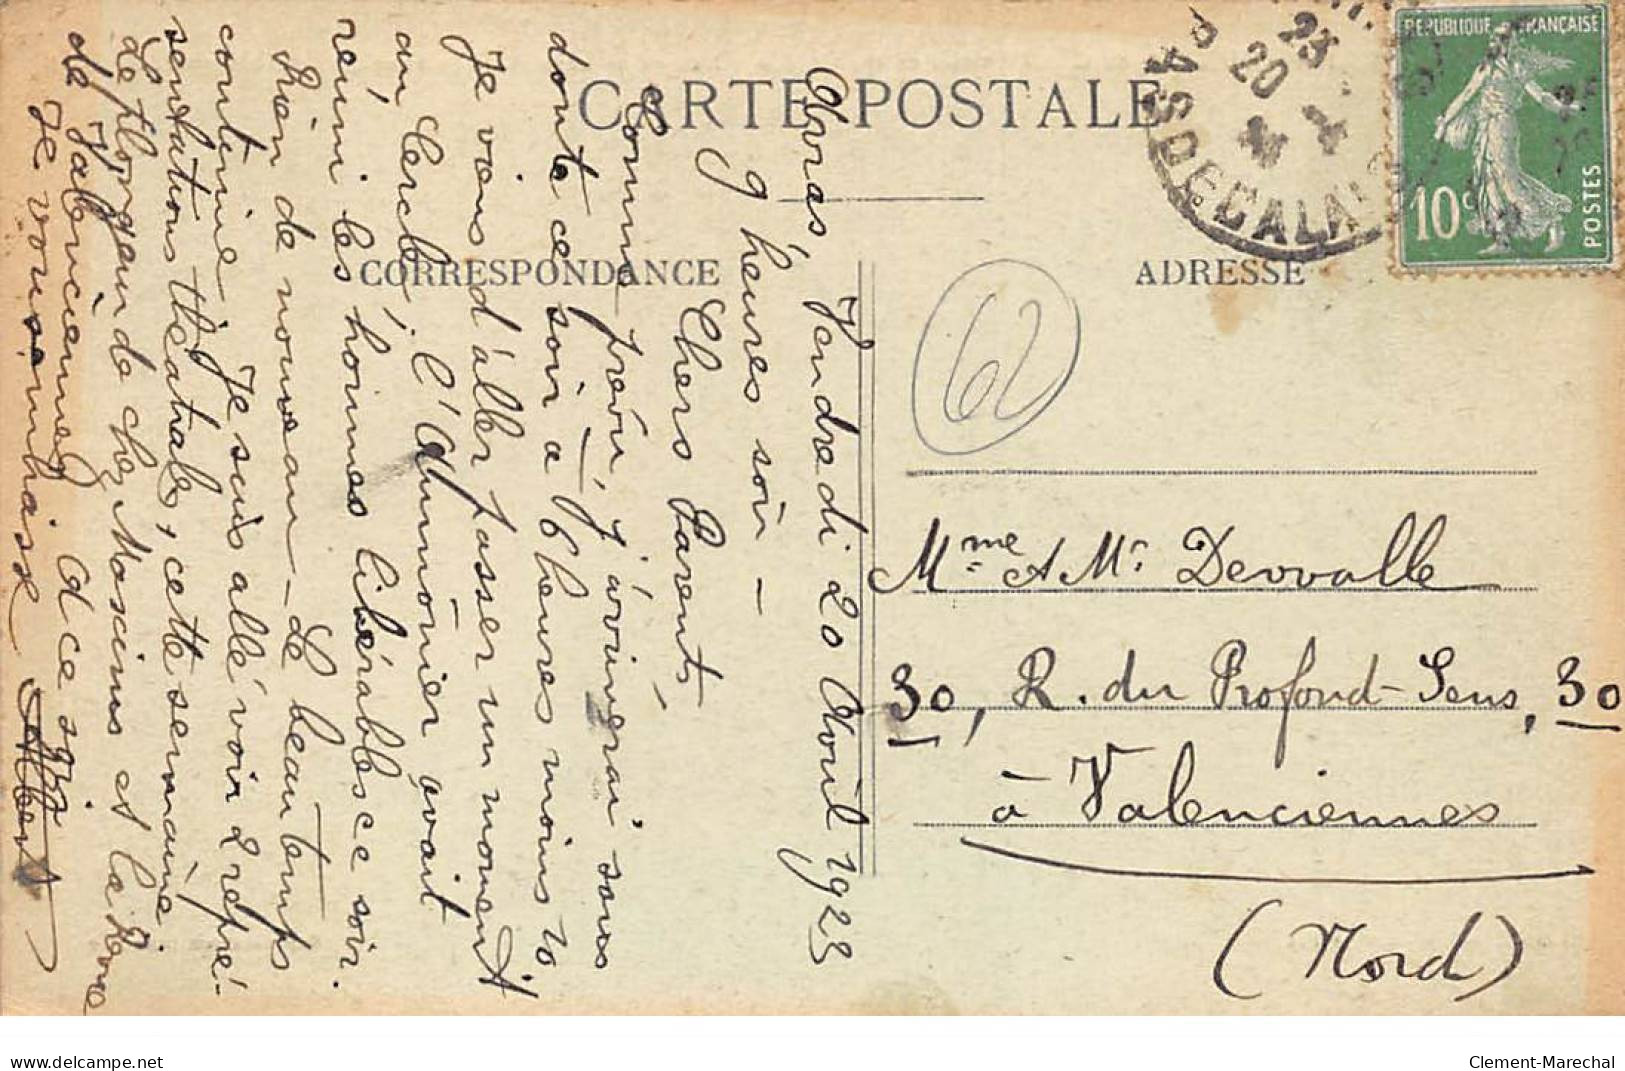 CARTE POSTALE
CORRESPONDANCE
ADRESSE
REPUBLIQUE FRANÇAISE
10c
POSTES
PAS DE CALAIS
23
20 - 4
62
Arras, Vendredi 20 Avril 1923
9 heures soir —
Chers Parents,
Comme prévu, j'arriverai sans
doute ce soir à 6 heures moins 10
Je viens d'aller passer un moment
au Cercle, l'Aumônier avait
réuni les hommes libérables ce soir.
Rien de nouveau — Le beau temps
continue. Je suis allé voir 2 repré-
sentations théatrales, cette semaine
Le Plongeur de chez Maxims et la
de Valenciennes. A ce soir
Je vous embrasse
Albert
Mme & Mr. Devvalle
30, R. du Profond-Sens, 30
à Valenciennes
(Nord)
delcampe.net
Clement-Marechal